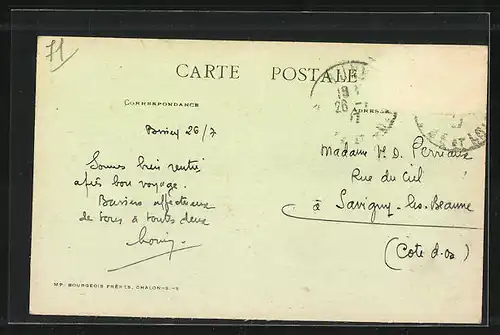 71
CARTE POSTALE
CORRESPONDANCE
ADRESSE
26/7
Sommes bien rentrés
après bon voyage.
Baisers affectueux
de tous à toutes deux
Madame Vve D. Perreaux
Rue du Ciel
à Savigny-les-Beaune
(Cote d'or)
IMP. BOURGEOIS FRÈRES, CHALON-S.-S.